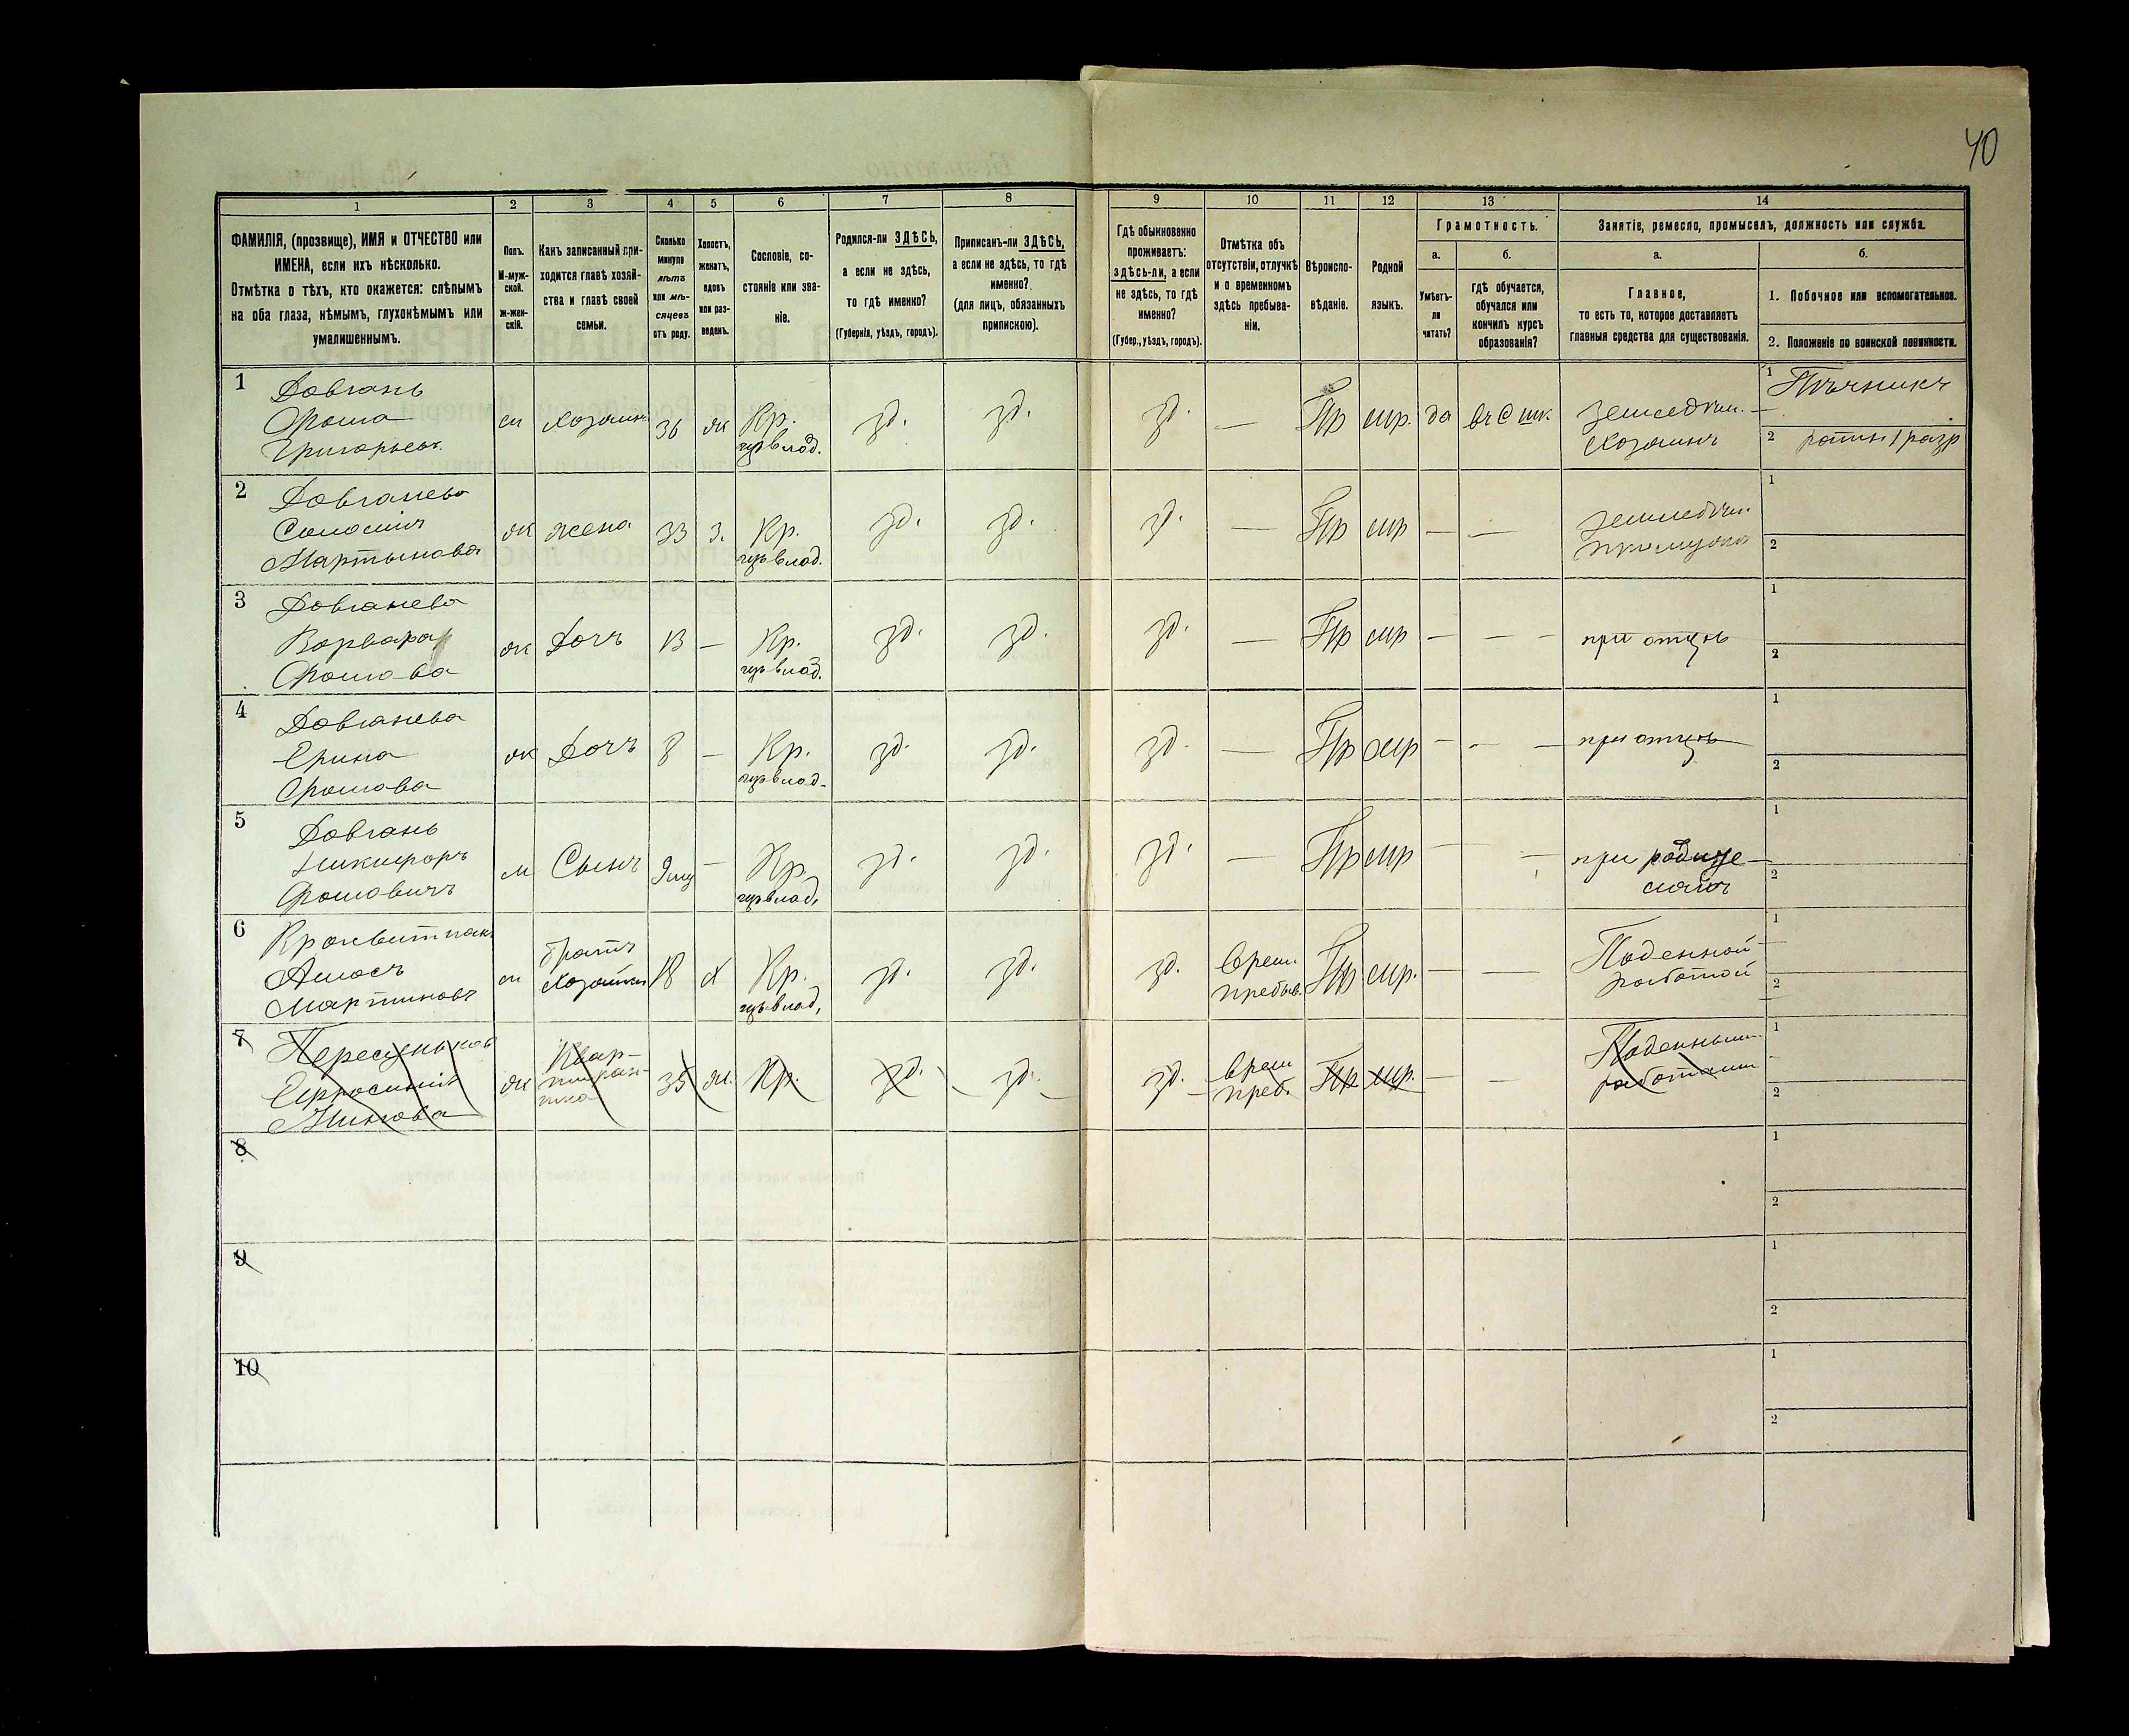 40
1 2 3 4 5 6 7 8 9 10 11 12 13 14
ФАМИЛІЯ, (прозвище), ИМЯ и ОТЧЕСТВО или
ИМЕНА, если ихъ нѣсколько.
Отмѣтка о тѣхъ, кто окажется: слѣпымъ
на оба глаза, нѣмымъ, глухонѣмымъ или
умалишеннымъ.
Полъ.
М-муж-
ской.
Ж-жен-
скій.
Какъ записанный при-
ходится главѣ хозяй-
ства и главѣ своей
семьи.
Сколько
минуло
лѣтъ
или мѣ-
сяцевъ
отъ роду.
Холостъ,
женатъ,
вдовъ
или раз-
веденъ.
Сословіе, со-
стояніе или зва-
ніе.
Родился-ли ЗДѢСЬ,
а если не здѣсь,
то гдѣ именно?
(Губернія, уѣздъ, городъ).
Приписанъ-ли ЗДѢСЬ,
а если не здѣсь, то гдѣ
именно?
(для лицъ, обязанныхъ
припискою).
Гдѣ обыкновенно
проживаетъ:
здѣсь-ли, а если
не здѣсь, то гдѣ
именно?
(Губер., уѣздъ, городъ).
Отмѣтка объ
отсутствіи, отлучкѣ
и о временномъ
здѣсь пребыва-
ніи.
Вѣроиспо-
вѣданіе.
Родной
языкъ.
Грамотность.
а.
Умѣетъ-
ли
читать?
б.
гдѣ обучается,
обучался или
кончилъ курсъ
образованія?
Занятіе, ремесло, промыселъ, должность или служба.
а.
Главное,
то есть то, которое доставляетъ
главныя средства для существованія.
б.
1. Побочное или вспомогательное.
2. Положеніе по воинской повинности.
1 Довгань
Григорьев.
м хозяинъ 36 ж Кр. зд. зд. зд. — Пр мр. да
Хозяинъ
1 Пѣчникъ
2 ратн. 1 разр
2 Довганева
Мартынова
ж жена 33 З. Кр. зд. зд. зд. — Пр мр — —
1
2
3 Довганева
Варвара
Фомова
ж Дочъ 13 — Кр. зд. зд. зд. — Пр мр — — при отцѣ
1
2
4 Довганева
Ирина
Фомова
ж Дочъ 8 — Кр. зд. зд. зд. — Пр мр — — при отцѣ
1
2
5 Довгань
Никифоръ
Фомовичъ
м Сынъ 9 мц — Кр. зд. зд. зд. — Пр мр — — при родите-
ляхъ
1
2
6
Амосъ
Мартиновъ
м братъ
хозяйки
18 Х Кр. зд. зд. зд. Врем.
пребыв.
Пр мр. — — Поденной
работой
1
2
7
Ж Квар-
тиран-
тка
35 Ж. Кр. зд. зд. зд. Врем
преб.
Пр мр. — — Поденными
работами
1
2
8
1
2
9
1
2
10
1
2